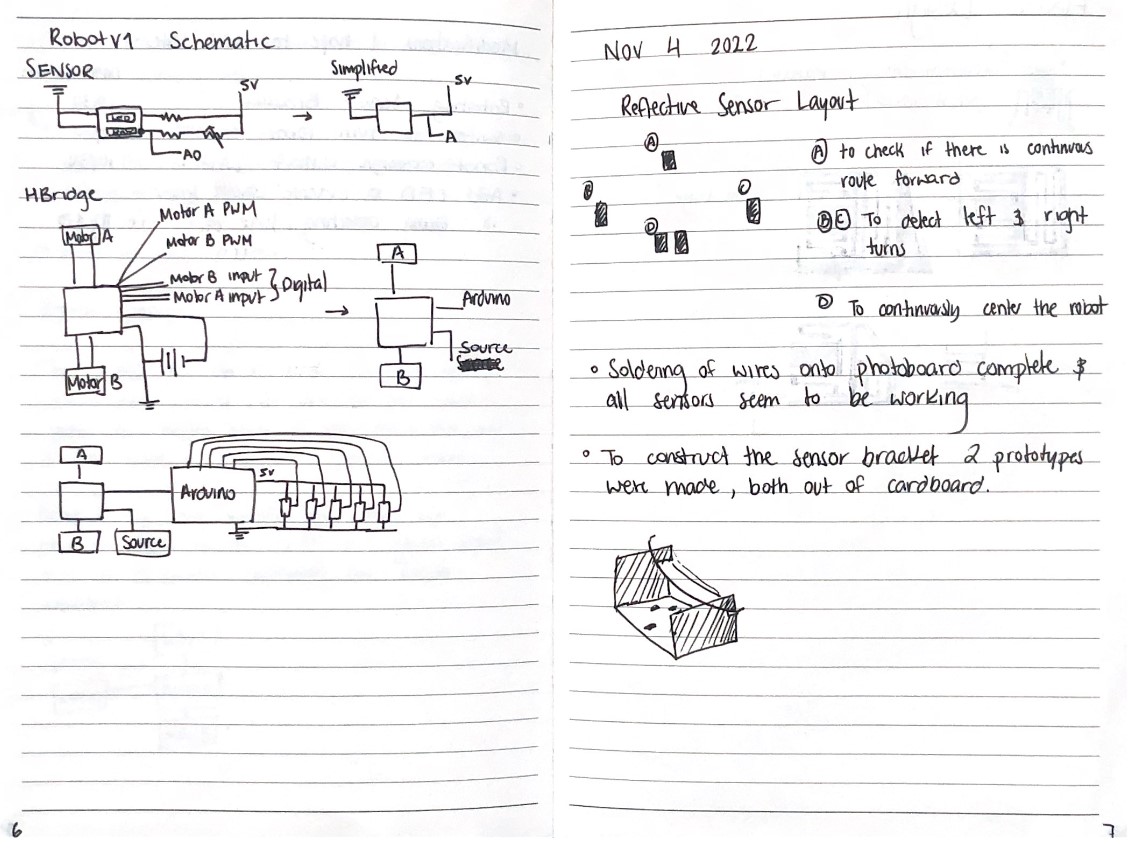 Robot v1 Schematic
SENSOR
Simplified
5V
5V
LED
A
A0
HBridge
Motor A PWM
Motor A
Motor B PWM
Motor B input
Motor A input
Digital
A
Arduino
Source
B
Motor B
A
5V
Arduino
B
Source
6
NOV 4 2022
Reflective Sensor Layout
A
B
D
A to check if there is continuous
route forward
B E To detect left & right
turns
D To continuously center the robot
• Soldering of wires onto photoboard complete &
all sensors seem to be working
• To construct the sensor bracket 2 prototypes
were made, both out of cardboard.
7